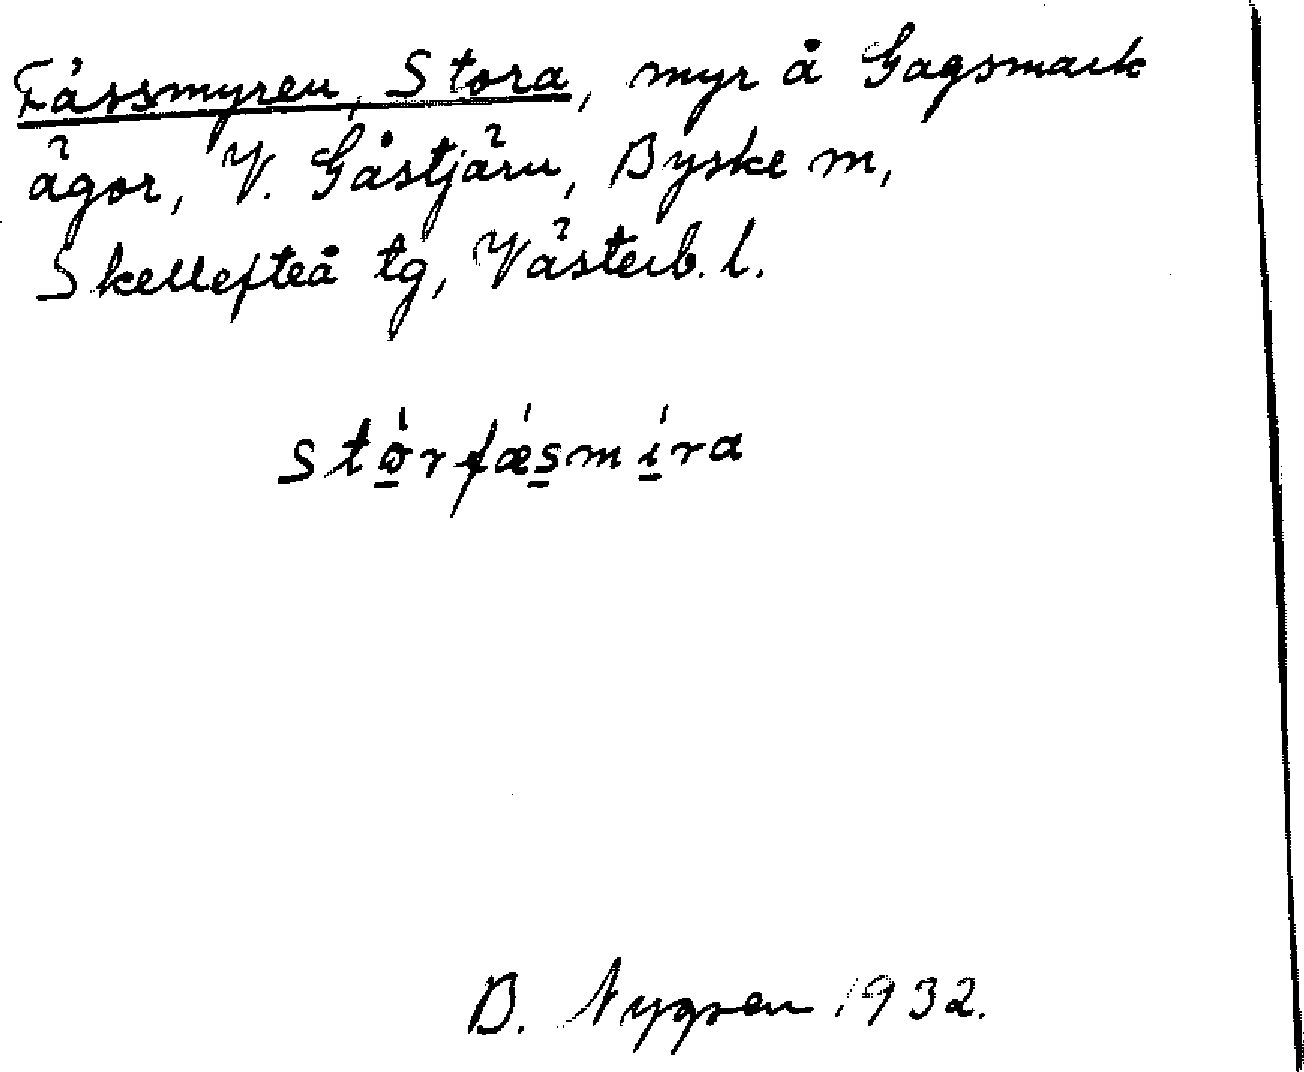 Fässmyren, Stora, myr å Gagsmark
ägor, V. Gåstjärn, Byske m,
Skellefteå tg, Västerb. l.
stò̲rfǽs̲mí̲ra
B. Nygren 1932.